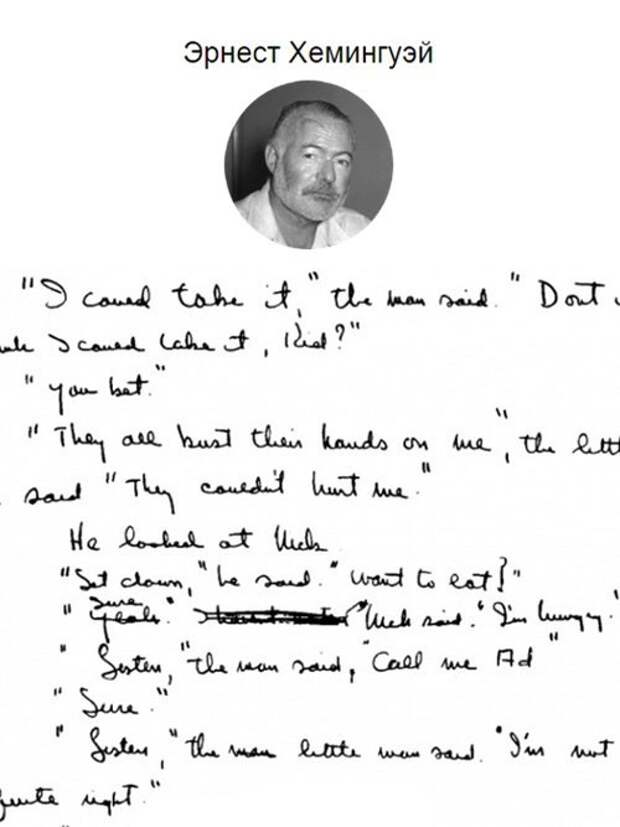 Эрнест Хемингуэй
"I could take it," the man said. "Dont
I could take it, Kid?"
"You bet."
"They all bust their hands on me," the little
said "They couldn't hurt me."
He looked at Nick
"Sit down," he said. "Want to eat?"
Sure
"Yeah." Nick said. "I'm hungry."
"Listen," the man said, "Call me Ad"
"Sure."
"Listen," the man little man said. "I'm not
quite right."